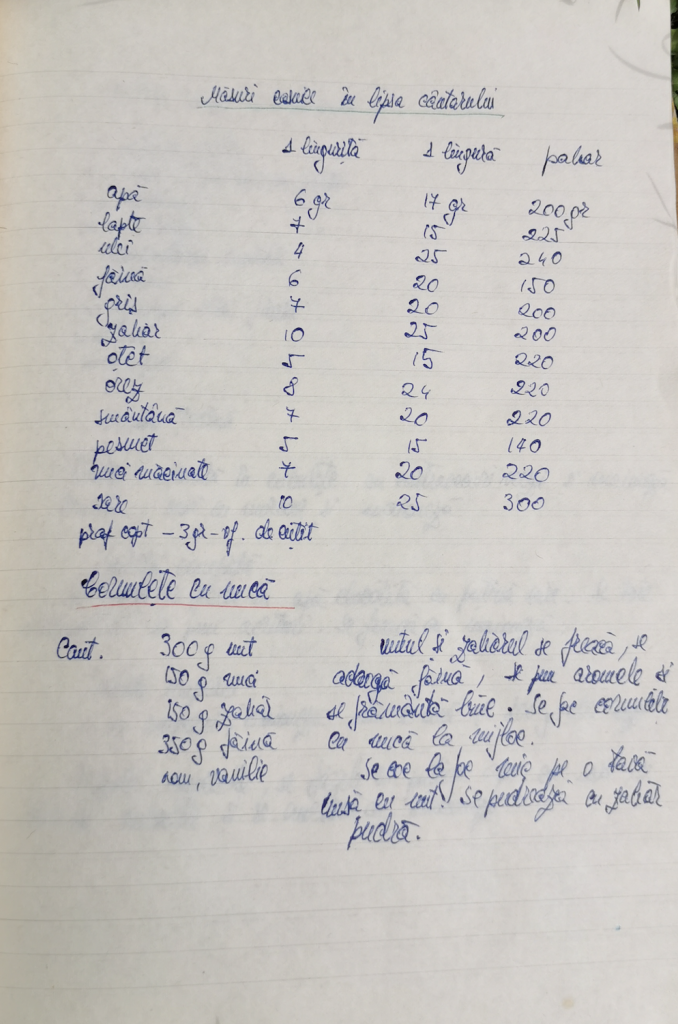 Măsuri casnice în lipsa cântarului
1 linguriță 1 lingură pahar
apă 6 gr 17 gr 200 gr
lapte 7 15 225
ulei 4 25 240
făină 6 20 150
griș 7 20 200
zahăr 10 25 200
oțet 5 15 220
orez 8 24 220
smântână 7 20 220
pesmet 5 15 140
nuci măcinate 7 20 220
sare 10 25 300
praf copt – 3 gr – vf. de cuțit
Cornulețe cu nucă
Cant. 300 g unt untul și zahărul se freacă, se
150 g nuci adaugă făină, se pun aromele și
150 g zahăr se frământă bine. Se fac cornulețe
350 g făină cu nucă la mijloc.
rom, vanilie Se coc la foc mic pe o tavă
unsă cu unt. Se pudrează cu zahăr
pudră.